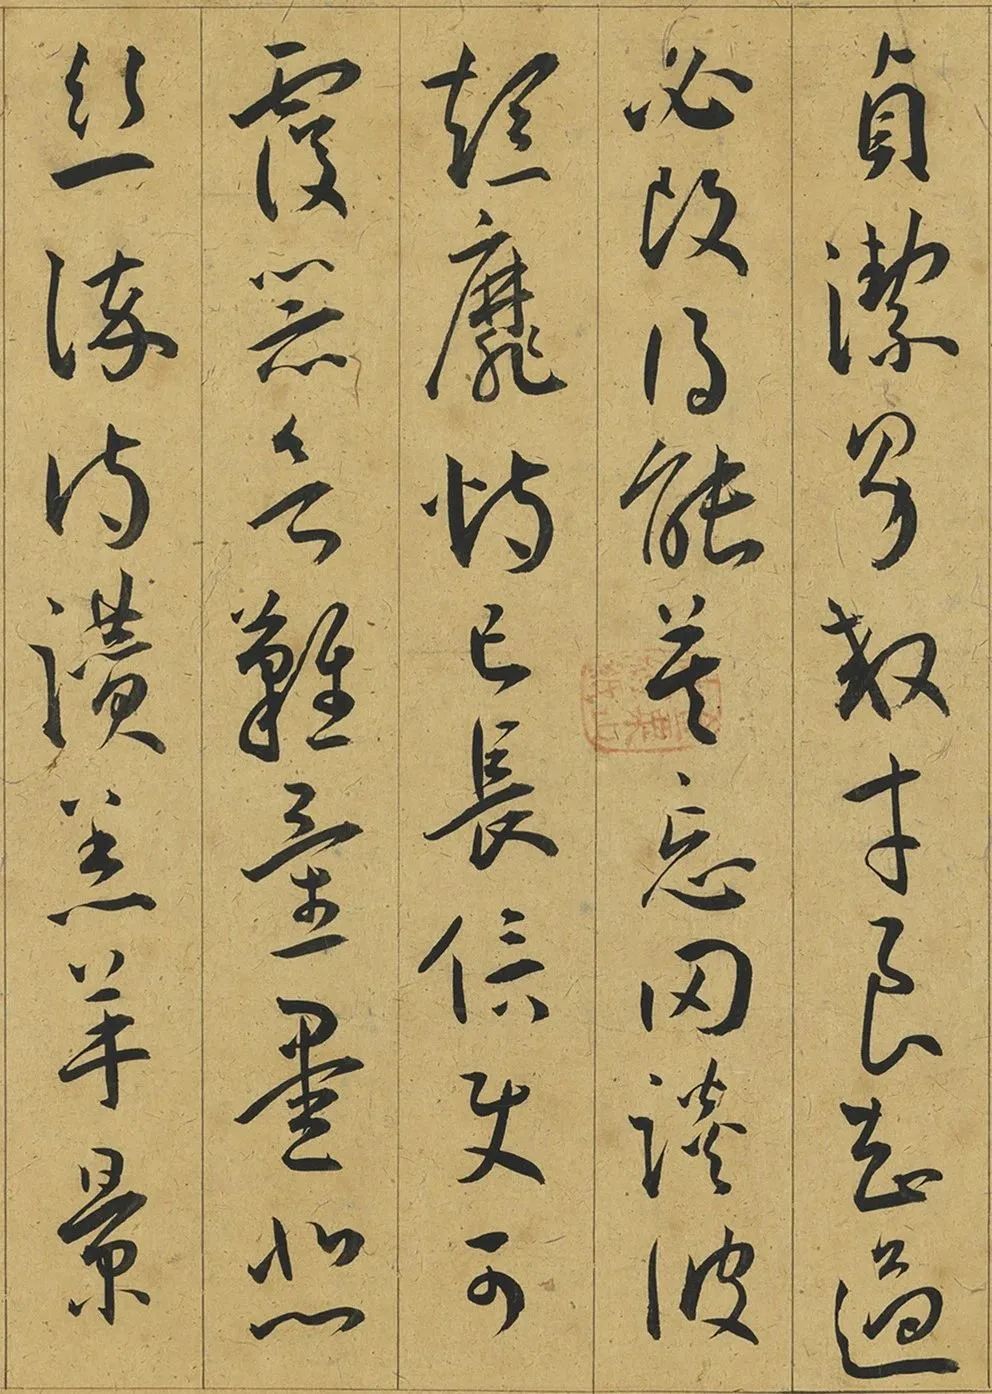 貞潔男效才良知過
必改得能莫忘罔談彼
短靡恃己長信使可
覆器欲難量墨悲
絲染詩讚羔羊景